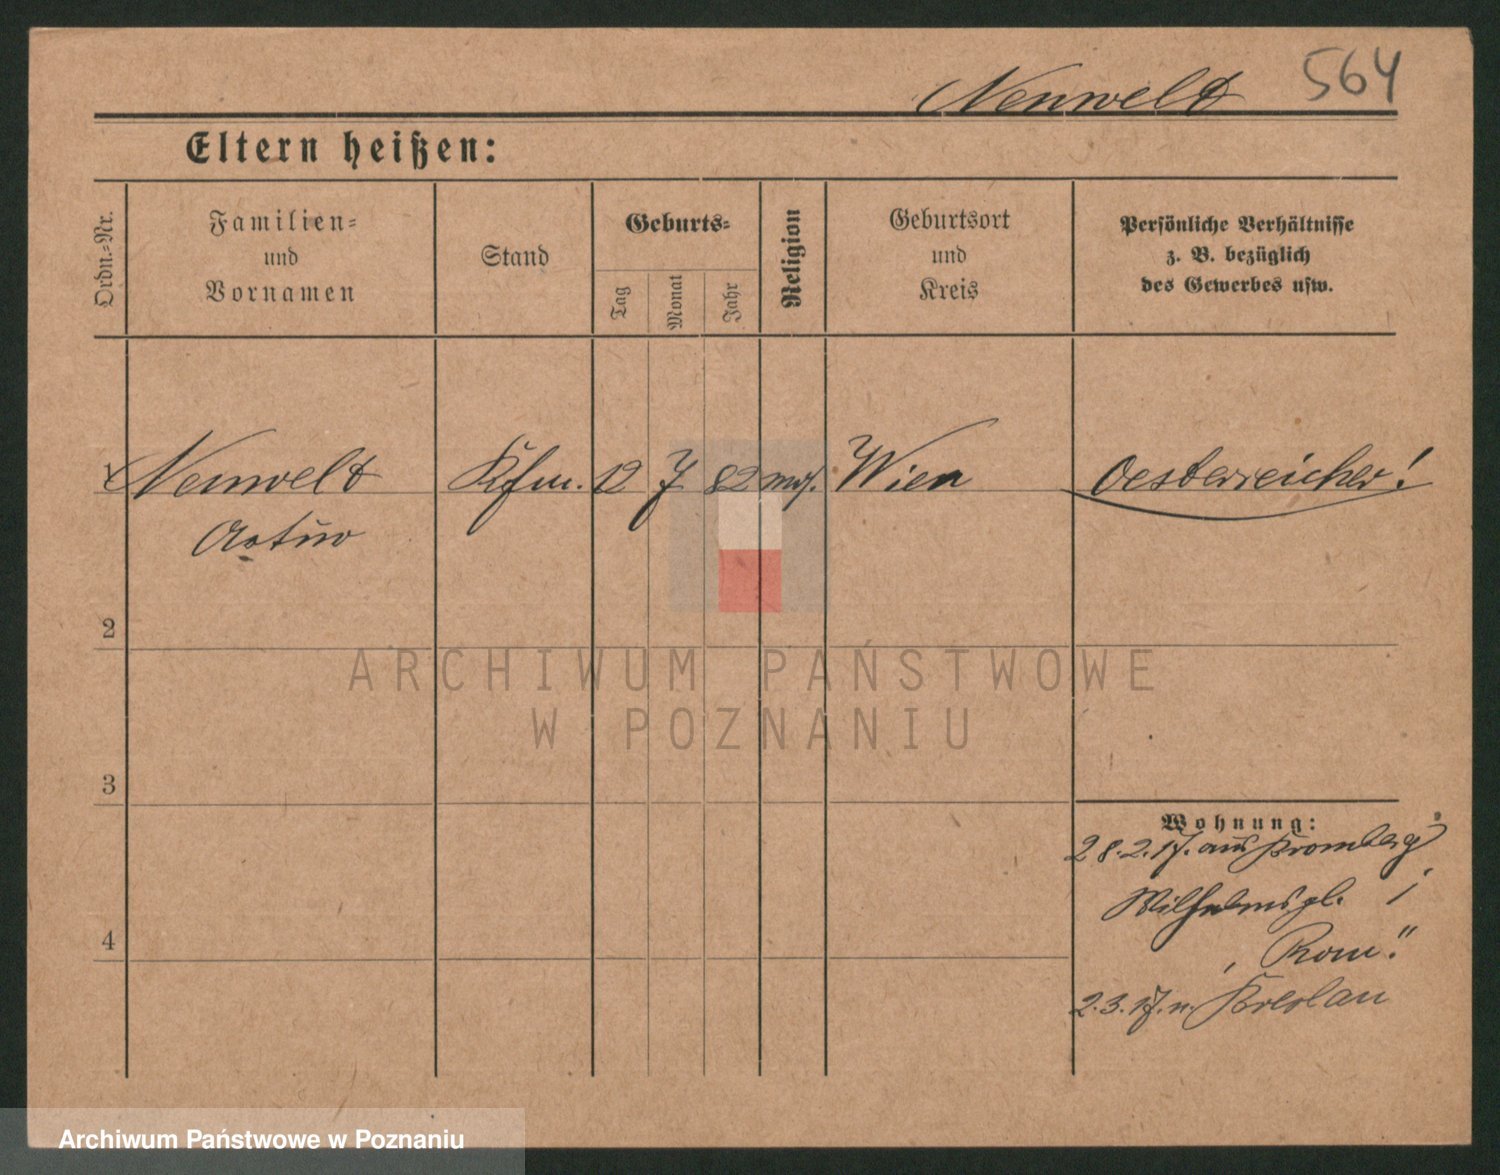 Neuwelt 564
Eltern heißen:
Ordn.=Nr.
Familien=
und
Vornamen
Stand
Geburts=
Tag
Monat
Jahr
Religion
Geburtsort
und
Kreis
Persönliche Verhältnisse
z. B. bezüglich
des Gewerbes usw.
1 Neuwelt Kfm. 12 7 82 mos. Wien Oesterreicher!
Artur
2
ARCHIWUM PAŃSTWOWE
W POZNANIU
3
Wohnung:
28.2.17. aus Bromberg
Wilhelmspl. 1
„Rom“
2.3.17. n. Breslau
4
Archiwum Państwowe w Poznaniu